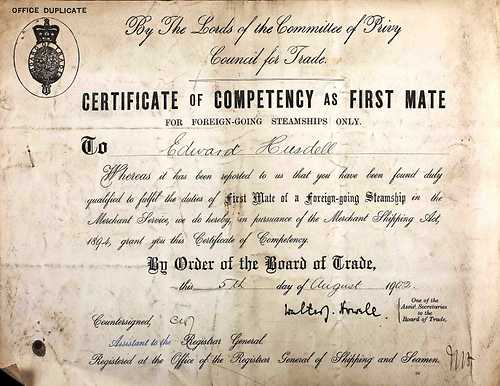 OFFICE DUPLICATE
By The Lords of the Committee of Privy
Council for Trade.
CERTIFICATE OF COMPETENCY AS FIRST MATE
FOR FOREIGN-GOING STEAMSHIPS ONLY.
To Edward Husdell
Whereas it has been reported to us that you have been found duly
qualified to fulfil the duties of First Mate of a Foreign-going Steamship in the
Merchant Service, we do hereby, in pursuance of the Merchant Shipping Act,
1894, grant you this Certificate of Competency.
By Order of the Board of Trade,
this 5th day of August 1902.
Walter J. Howell
One of the
Assist. Secretaries
to the
Board of Trade.
Countersigned,
Assistant to the Registrar General.
Registered at the Office of the Registrar General of Shipping and Seamen.